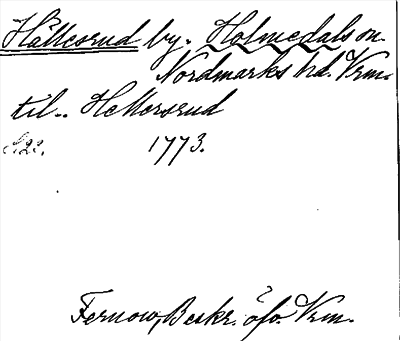 Hällesrud by. Holmedals sn.
Nordmarks hd. Vrm.
til.. Hellersrud
S. 22. 1773.
Fernow, Beskr. öfv. Vrm.